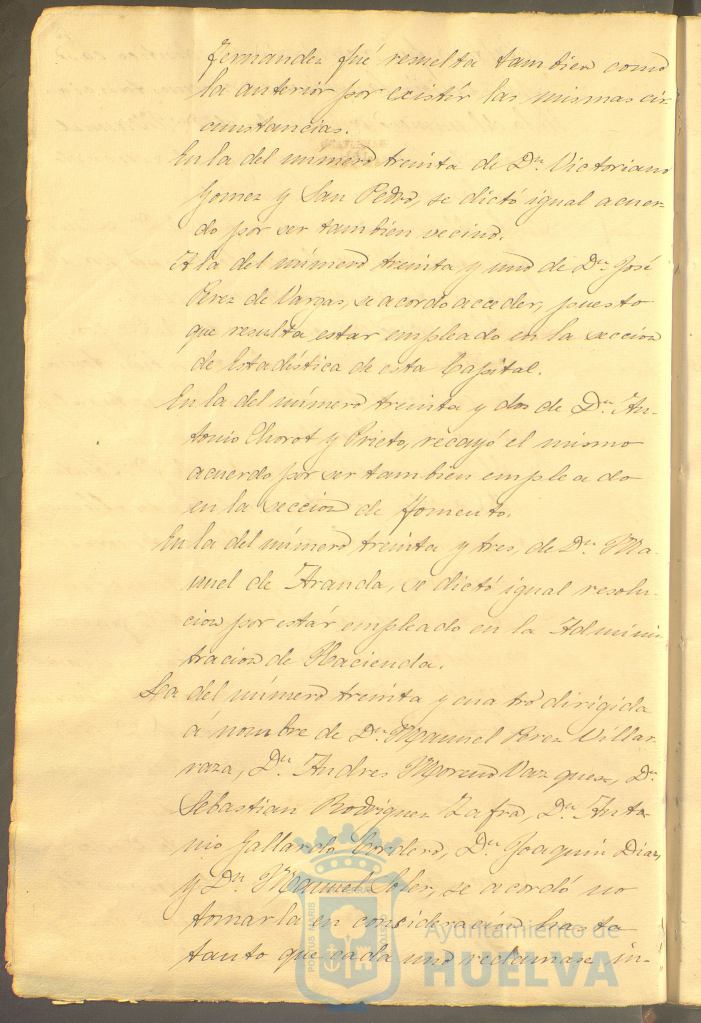 Fernandez fué resuelta tambien como
la anterior por existir las mismas cir-
cunstancias.
En la del número treinta de Dn. Victoriano
Gomez y San Pedro, se dictó igual acuer-
do por ser tambien vecino.
A la del número treinta y uno de Dn. José
Perez de Vargas, se acordo acceder, puesto
que resulta estar empleado en la seccion
de Estadística de esta Capital.
En la del número treinta y dos de Dn. An-
tonio Chorot y Prieto, recayó el mismo
acuerdo por ser tambien empleado
en la seccion de Fomento.
En la del número treinta y tres, de Dn. Ma-
nuel de Aranda, se dictó igual resolu-
cion por estár empleado en la Adminis-
tracion de Hacienda.
La del número treinta y cuatro dirigida
á nombre de Dn. Manuel Perez Villar-
raza, Dn. Andres Moreno Vazquez, Dn.
Sebastian Rodriguez Zafra, Dn. Anto-
nio Gallardo Cordero, Dn. Joaquin Diaz
y Dn. Manuel Soler, se acordó no
tomarla en consideracion hasta
tanto que cada uno reclamase in-
PORTUS MARIS
Ayuntamiento de
HUELVA